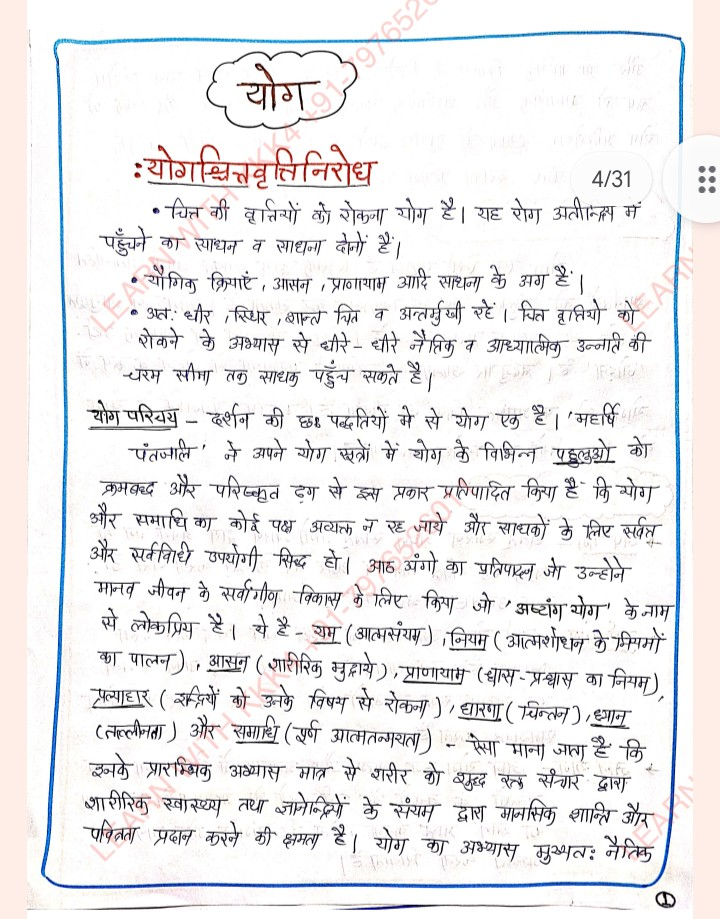 योग
:योगश्चित्तवृत्तिनिरोध
4/31
• चित्त की वृत्तियों को रोकना योग है। यह रोग अतीन्द्रिय में
पहुँचने का साधन व साधना दोनों है।
• यौगिक क्रियाएँ, आसन, प्राणायाम आदि साधना के अंग हैं।
• अत: धीर, स्थिर, शान्त चित्त व अन्तर्मुखी रहें। चित्त वृत्तियो को
रोकने के अभ्यास से धीरे-धीरे नैतिक व आध्यात्मिक उन्नति की
चरम सीमा तक साधक पहुँच सकते है।
योग परिचय - दर्शन की छः पद्धतियों मे से योग एक है। 'महर्षि
पंतजलि' ने अपने योग सूत्रों में योग के विभिन्न पहुलुओ को
क्रमबद्ध और परिष्कृत ढ़ग से इस प्रकार प्रतिपादित किया है कि योग
और समाधि का कोई पक्ष अव्यक्त न रह जाये और साधकों के लिए सर्वत्र
और सर्वविधि उपयोगी सिद्ध हो। आठ अंगो का प्रतिपादन जो उन्होने
मानव जीवन के सर्वांगीण विकास के लिए किया जो 'अष्टांग योग' के नाम
से लोकप्रिय है। ये है - यम (आत्मसंयम), नियम (आत्मशोधन के नियमों
का पालन), आसन (शारीरिक मुद्राये), प्राणायाम (श्वास-प्रश्वास का नियम),
प्रत्याहार (इन्द्रियों को उनके विषय से रोकना), धारणा (चिन्तन), ध्यान
(तल्लीनता) और समाधि (पूर्ण आत्मतन्मयता) - ऐसा माना जाता है कि
इनके प्रारम्भिक अभ्यास मात्र से शरीर को शुद्ध रक्त संचार द्वारा
शारीरिक स्वास्थ्य तथा ज्ञानेन्द्रियों के संयम द्वारा मानसिक शान्ति और
पवित्रता प्रदान करने की क्षमता है। योग का अभ्यास मुख्यत: नैतिक
1
LEARN WITH KKK4 +91-797652601